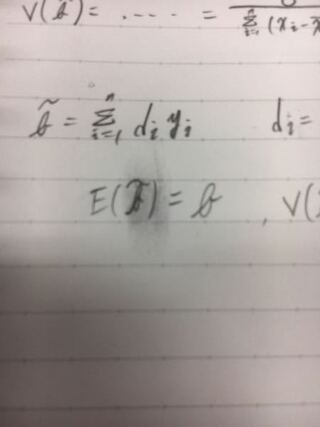 V(b̂) = ..... = / Σ_{i=1}^{n} (x_i - x̄
b̃ = Σ_{i=1}^{n} d_i y_i d_i =
E(b̃) = b , V(